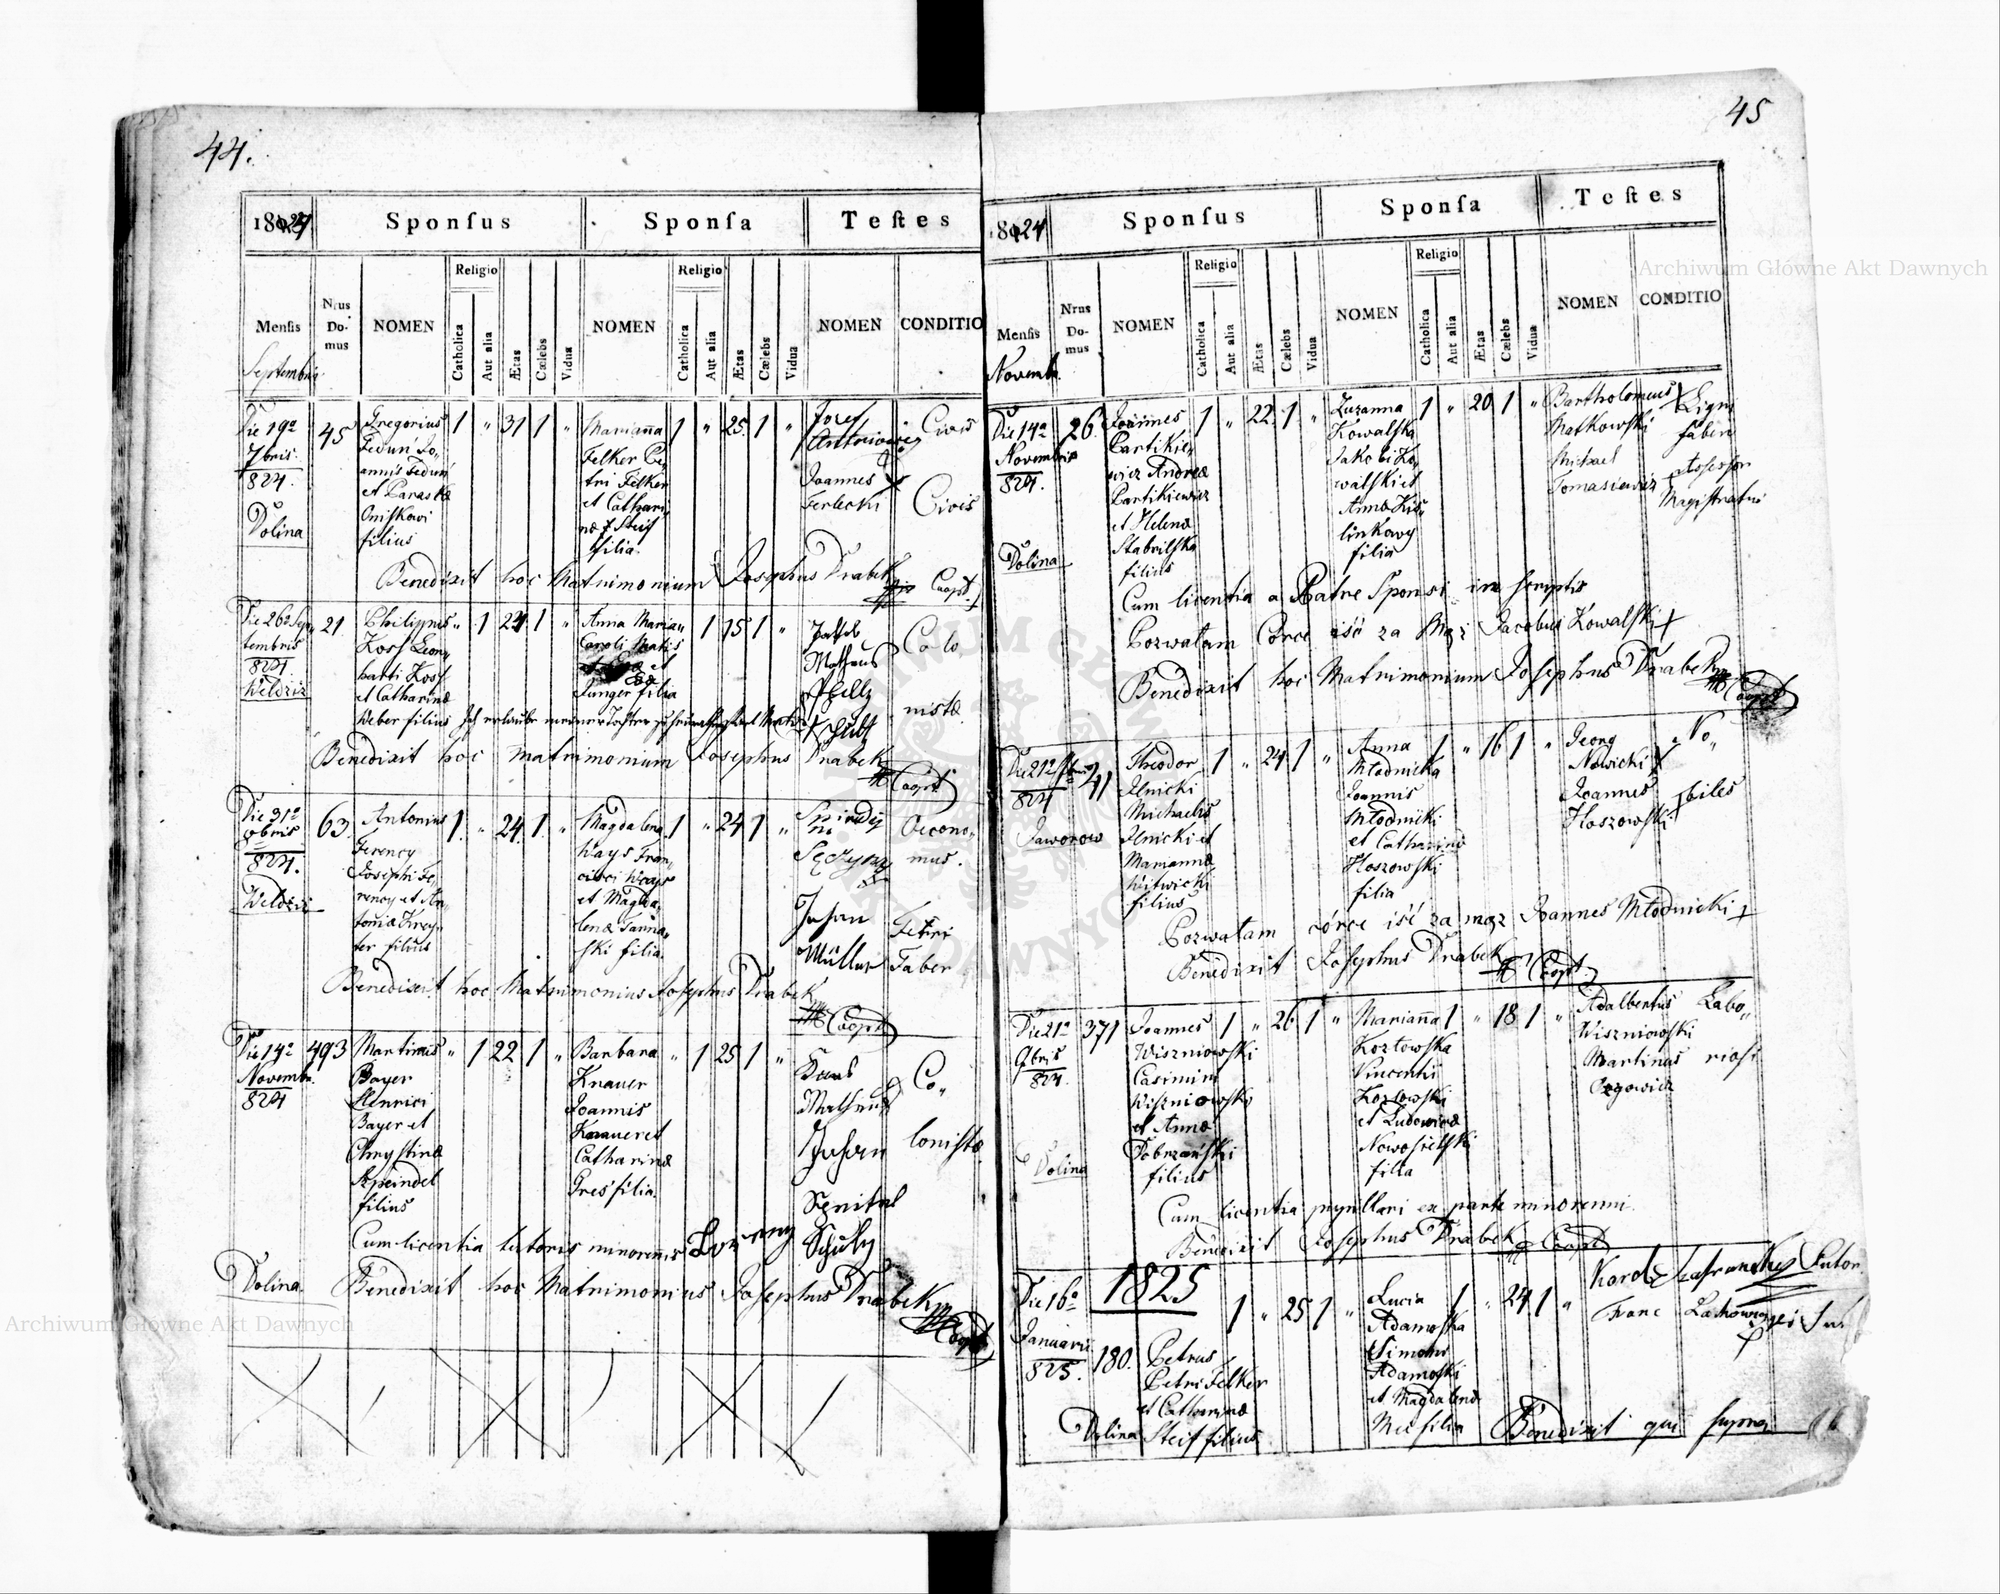 44.
1824
Sponſus
Sponſa
Teſtes
Menſis
Nrus Do- mus
NOMEN
Religio
Catholica
Aut alia
Ætas
Cælebs
Vidua
NOMEN
Religio
Catholica
Aut alia
Ætas
Cælebs
Vidua
NOMEN
CONDITIO
Septembris
Die 19a
7bris
824.
Dolina
45
Gregorius
Fedun Jo„
annis Fedun
et Paraskæ
Oniskowi
filius
1 „ 31 1 „
Marianna
Felker Pe„
tri Felker
et Cathari„
næ Steif
filia.
1 „ 25 1 „
Jozef
Joannes
Terlecki
Civis
Civis
Benedixit hoc Matrimonium Josephus Drabek
Coopt.
Die 26a Sep„
tembris
824
Weldziz
21
Philippus
Koss Leon„
hardi Koss
et Catharinæ
Weber filius
„ 1 24 1 „
Anna Maria
Caroli Matis
et Eva
Junger filia
„ 1 15 1 „
Jakob
Matheus
Schultz
Colo
nistæ
Ich erlaube meiner Tochter zu heurathen Karl Matis
Benedixit hoc matrimonium Josephus Drabek
Coopt
Die 31a
8bris
824.
Weldziz
63
Antonius
Ferency
Josephi Fe„
rency et An„
toniæ Krey„
ter filius
1 „ 24 1 „
Magdalena
Ways Fran„
cisci Ways
et Magda„
lenæ Janna„
ski filia.
1 „ 24 1 „
Johan
Müller
Oecono„
mus.
Ferri
Faber
Benedixit hoc Matrimonium Josephus Drabek
Coopt
Die 14a
Novemb.
824
493
Martinus
Bayer
Henrici
Bayer et
Chrystinæ
Szpeindel
filius
„ 1 22 1 „
Barbara
Knauer
Joannis
Knauer et
Catharinæ
Gres filia.
„ 1 25 1 „
Matheus
Johan
Schulz
Co„
lonistæ
Cum licentia tutoris minorennis
Dolina
Benedixit hoc Matrimonium Josephus Drabek
Coopt
45
1824
Sponſus
Sponſa
Teſtes
Menſis
Nrus Do- mus
NOMEN
Religio
Catholica
Aut alia
Ætas
Cælebs
Vidua
NOMEN
Religio
Catholica
Aut alia
Ætas
Cælebs
Vidua
NOMEN
CONDITIO
Novemb.
Die 14a
Novembris
824.
Dolina
26.
Joannes
Partikie„
wicz Andreæ
Partikiewicz
et Helenæ
Stabrilska
filius
1 „ 22 1 „
Zuzanna
Kowalska
Jakobi Ko„
walski et
Annæ Kis„
linkowy
filia
1 „ 20 1 „
Bartholomeus
Matkowski
Michael
Tomasiewicz
Ligni
fabri
Assessor
Magistratus
Cum licentia a Patre Sponsi in scriptis
Pozwalam Corce iść za Mąż Jacobus Kowalski +
Benedixit hoc Matrimonium Josephus Drabek
Coopt
Die 21a 9bris
824
Jaworow
41
Theodor
Ilnicki
Michaelis
Ilnicki et
Mariannæ
Witwicki
filius
1 „ 24 1 „
Anna
Młodnicka
Joannis
Młodnicki
et Catharinæ
Hoszowski
filia
1 „ 16 1 „
Georg
Nowicki
Joannes
Hoszowski
No„
biles
Pozwalam córce iść za mąż Joannes Młodnicki +
Benedixit Josephus Drabek
Coopt.
Die 21a
9bris
824.
Dolina
371
Joannes
Wiszniowski
Casimiri
Wiszniowski
et Annæ
Dobrzański
filius
1 „ 26 1 „
Marianna
Kozłowska
Vincentii
Kozłowski
et Ludovicæ
Nowosielski
filia
1 „ 18 1 „
Adalbertus
Wiszniowski
Martinus
Labo„
riosi
Cum licentia pupillari ex parte minorenni.
Benedixit Josephus Drabek
Coopt
1825
Die 16a
Januarii
825.
Dolina
180.
Petrus
Petri Felker
et Catharinæ
Steif filius
1 „ 25 1 „
Lucia
Adamoska
Simonis
Adamoski
et Magdalenæ
filia
1 „ 24 1 „
Karol
Franc
Benedixit qui supra
Archiwum Główne Akt Dawnych
Archiwum Główne Akt Dawnych